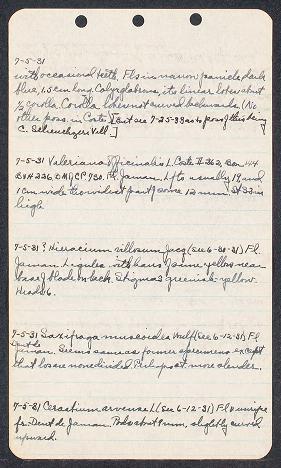 7-5-31
with occasional teeth. Fls in narrow panicle, dark
blue, 1.5 cm long. Calyx glabrous, its linear lobes about
½ corolla. Corolla lobes not curved backwards. (No
other poss. in Coste) [But see 7-25-38 as to poss of this being
C. Scheuchzeri Vill.]
7-5-31 Valeriana officinalis L. Coste II 262, Bon 144
Fl. Jaman. Lfts usually 19 and
1 cm wide tho widest part of some 12 mm. St 32 in
high.
7-5-31 ? Hieracium villosum Jacq (see 6-30-31) Fl.
Jaman. Ligules with hairs of same yellow near
base of blade on back. Stigmas greenish-yellow.
Heads 6.
7-5-31 Saxifraga muscoides Wulf (see 6-12-31) Fl
Dent de
Jaman. Seems same as former specimens except
that lvs are none divided. Perhaps st more slender.
7-5-31 Cerastium arvense L (see 6-12-31) Fl & unripe
fr. Dent de Jaman. Pods about 9 mm, slightly curved
upward.